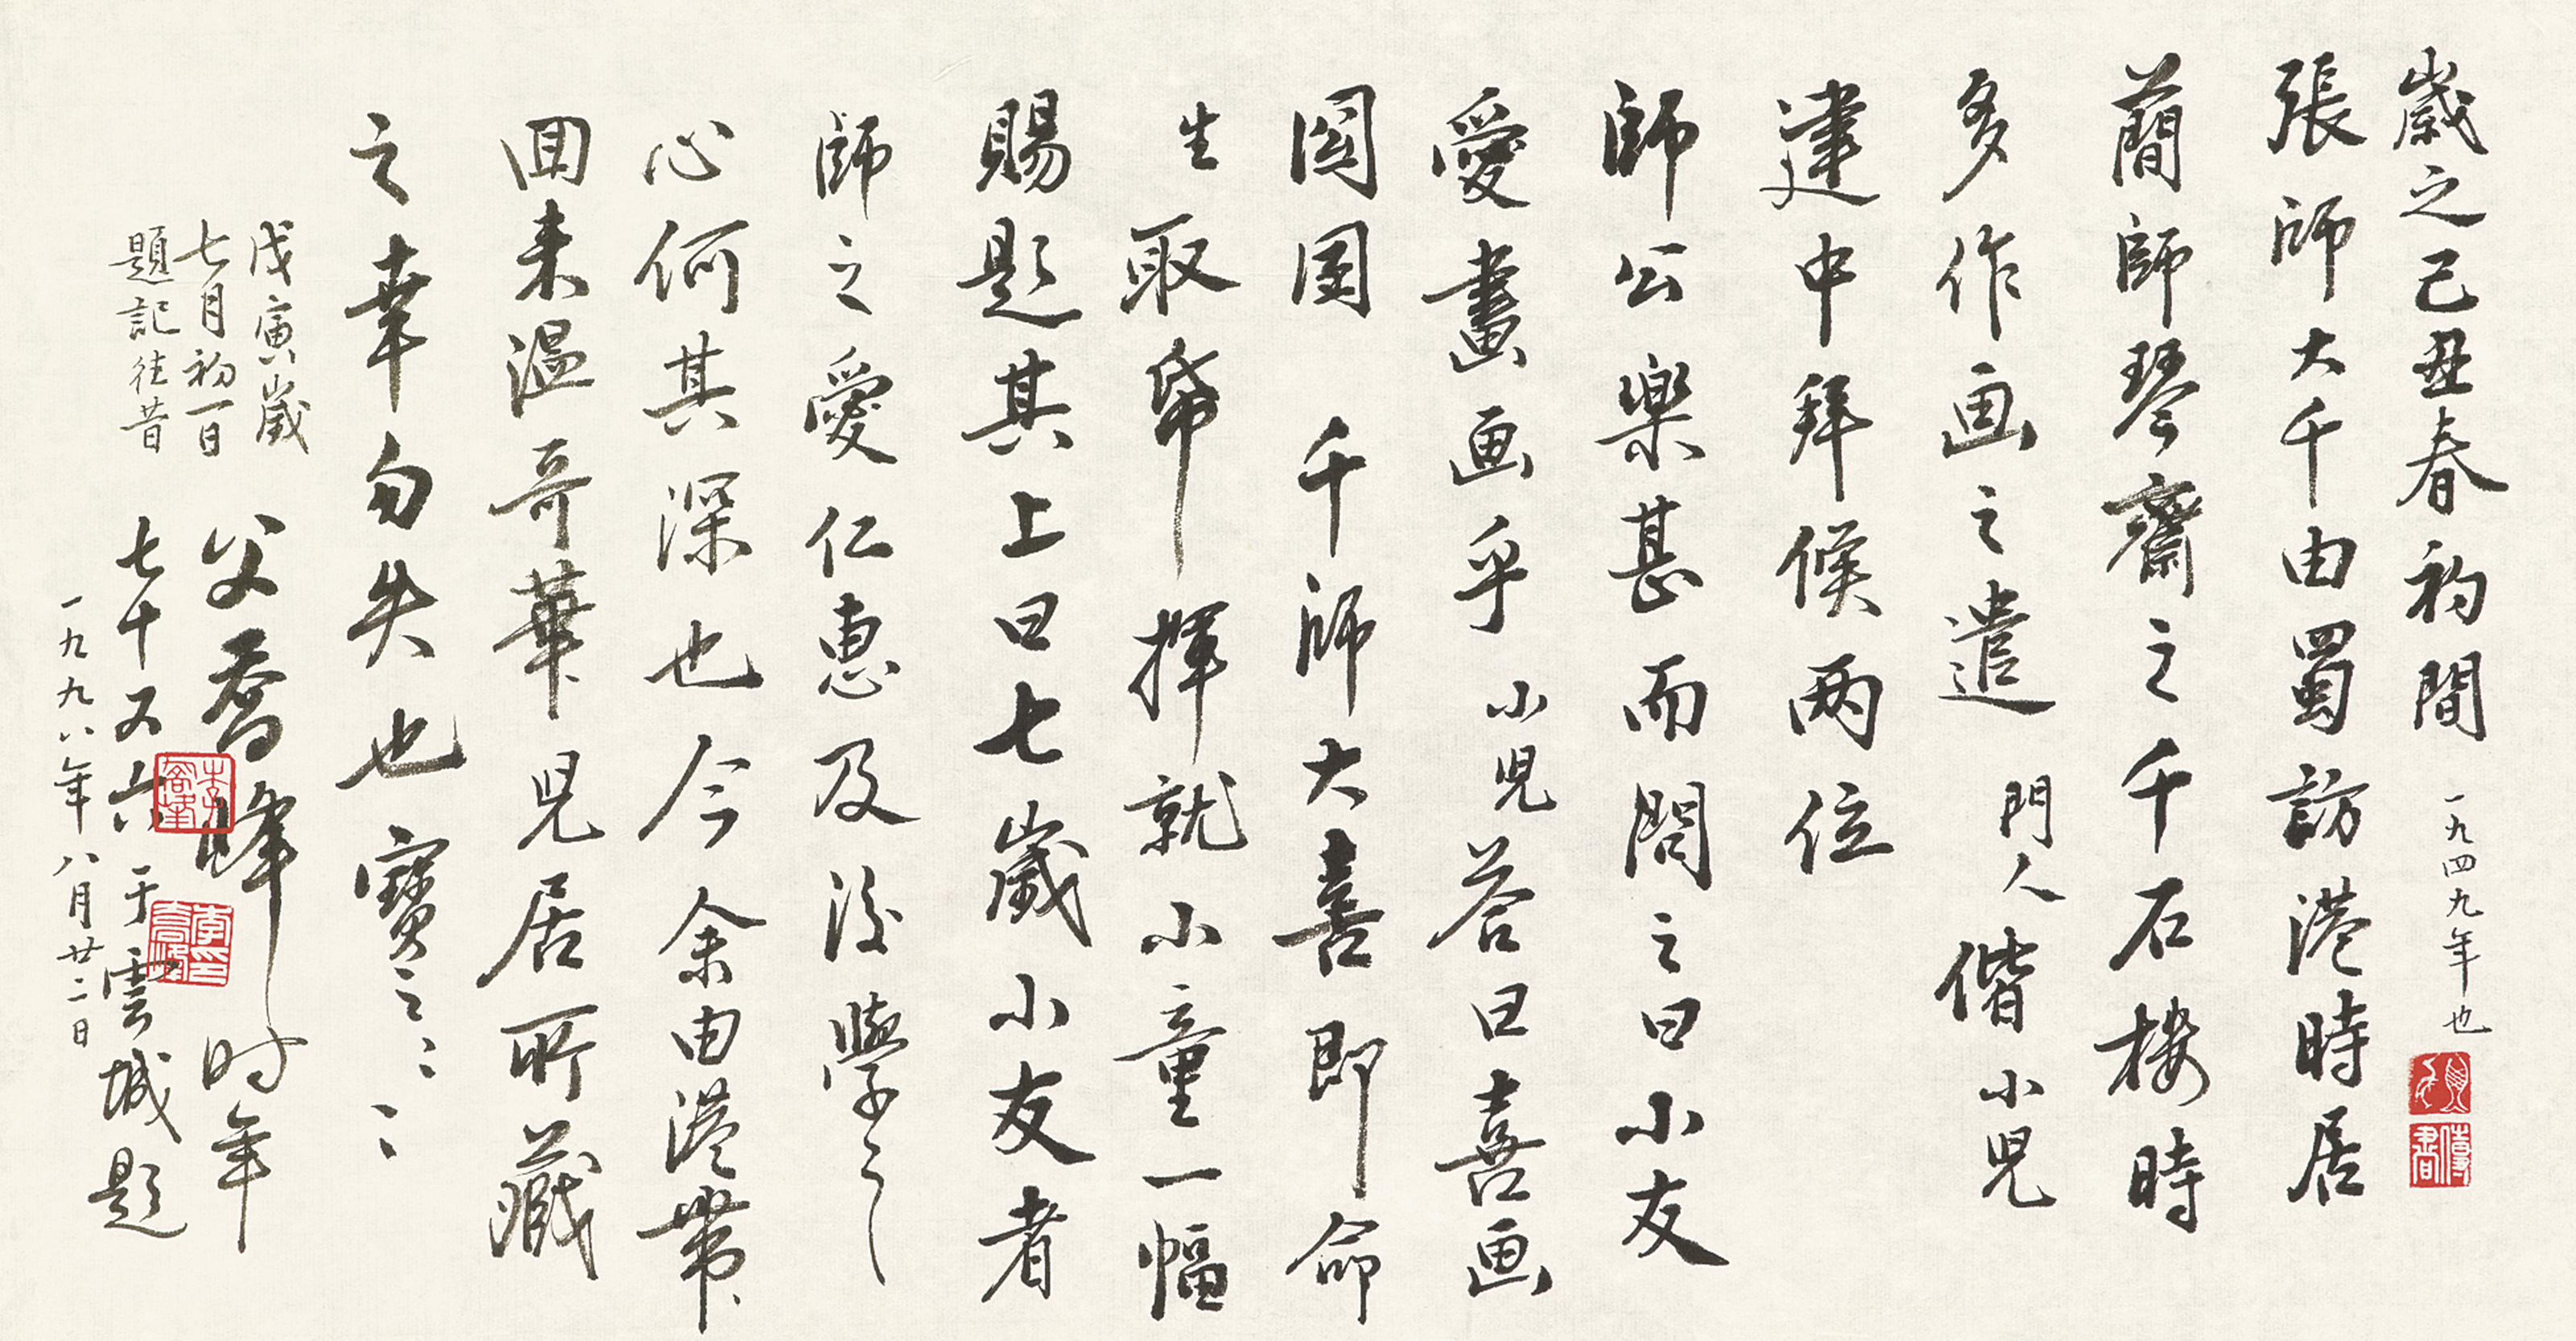 歲之己丑春初間 一九四九年也
張師大千由蜀訪港時居
蕳師琴齋之千石楼時
多作画之遣 門人偕小児
建中拜候两位
師公樂甚而問之曰小友
愛畫画乎 小児答曰喜画
圆圆 千師大喜即命
生取帋 揮就小童一幅
賜题其上曰七歲小友者
師之愛仁惠及後學之
心何其深也今余由港帶
囬来溫哥華児居所藏
之幸勿失也 寳之〻〻
戊寅歲
七月初一日
題記往昔
父喬峰时年
七十又六于雲城题
一九九八年八月廿二日